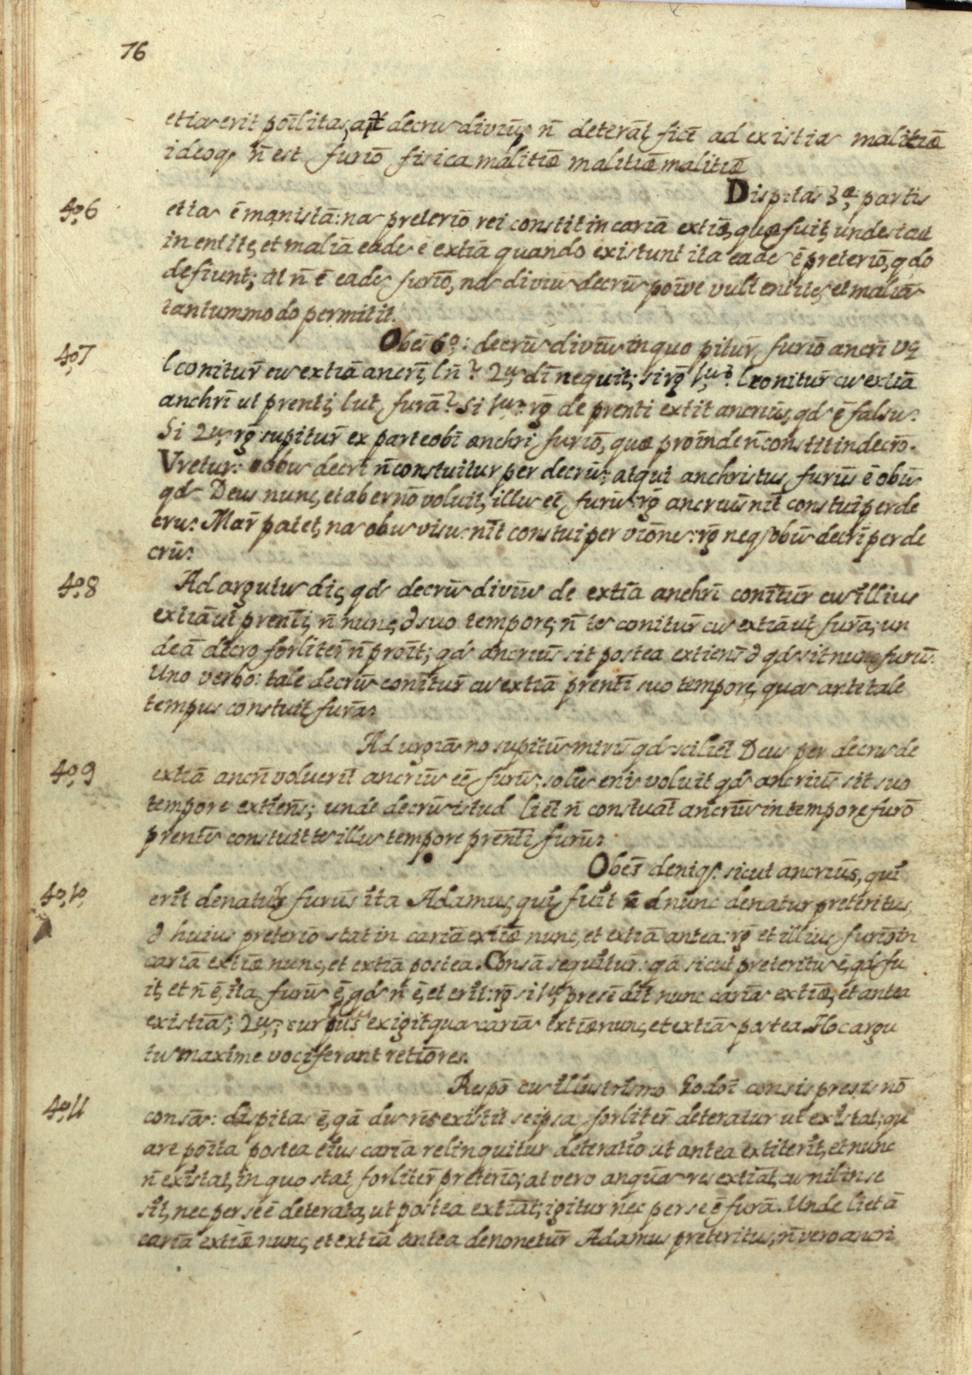 76
etia erit poīlitas, at decrū divīū, n̄ deterāt sicē ad existiā malitiæ
ideoq, n̄ est furiō fisica malitiæ malitiæ malitiæ
Dispitas 3ª partis
406 etia ē manistā: nā preteriō rei constit in cariā extiæ, quæ fuit,
in entite, et maliā eadē ē extiā quando existunt ita eadē ē preteriō, qdo
desiunt; at n̄ ē eadē furiō, nā divīū decrū poīve vult entite, et maliā
tantummodo permitit.
407 Obeī 6º: decrū divīū in quo pitur furiō ancrī
l conitur̄ cū extiā ancrī, l n̄? 2ū dī nequit; si 1ū l conitur̄ cū extiā
anchrī ut prenti, l ut furā? Si 1ū: rḡ de prenti extit ancrius, qd ē falsū:
Si 2ū rḡ supitur̄ ex parte obī anchrī furiō, quæ proīnde n̄ constit in decrō.
Vretur: obū decrī n̄ constuitur per decrū: atqui anchristus furūs ē obū
qd Deus nunc, et ab eternō voluit, illū eē furū: rḡ ancriū n̄it constui per de
crū: Mar̄ patet, nā obū visū n̄it constui per viōne: rḡ neq obū decrī per de
crū:
408 Ad argutū dic, qd decrū divīū de extiā anchrī conitur̄ cū illius
extiā ut prenti, n̄ nunc, d suo tempore, n̄ conitur̄ cū extiā ut furā; un
de ā decrō forliter n̄ proīt; qd ancriūs sit postea extiens d qd sit nunc furūs.
Uno verbo: tale decrū conitur̄ cū extiā prenti suo tempore, quā ante tale
tempus constuit furā:
Ad urgiā nō supitū mirū qd scilicet Deus per decrū de
409 extiā ancrī voluerit ancriū eē furū, solū enī voluit qd ancriūs sit suo
tempore extiens; unde decrū istud liēt n̄ constuāt ancriū in tempore furō
prentē constuit illū tempore prenti furū:
Obeī deniq: sicut ancriūs, qui
4010 erit denatur furūs ita Adamus, qui fuit nunc denatur preteritus,
d huius preteriō stat in cariā extiæ nunc, et extiā antea: rḡ et illius furiō in
cariā extiæ nunc, et extiā postea. Consā sequitur: qā sicut preteritū ē, qd fu
it, et n̄ ē, ita furū ē, qd n̄ ē, et erit: rḡ si 1ū presē dit nunc cariā extiæ, et antea
existiās; 2ū, cur plūs exigit quā cariā extiæ nunc, et extiā postea. Hoc argu
tū maxime vociferant retiōres.
Respō cū illustrimo Godoī consis presis nō
4011 consā: dispitas ē, qā dū res existit seipsā forliter deteratur ut existat; qu
are poīta postea eius cariā relinquitur deteratio ut antea extiterit, et nunc
n̄ existat, in quo stat forliter preteriō; at vero anquā res extiat, cū nil in se
sit, nec per se ē deterata, ut postea extiāt; igitur nec per se ē furā. Unde licet ā
cariā extiæ nunc, et extiā antea denonetur̄ Adamus preteritus, n̄ vero ancrī